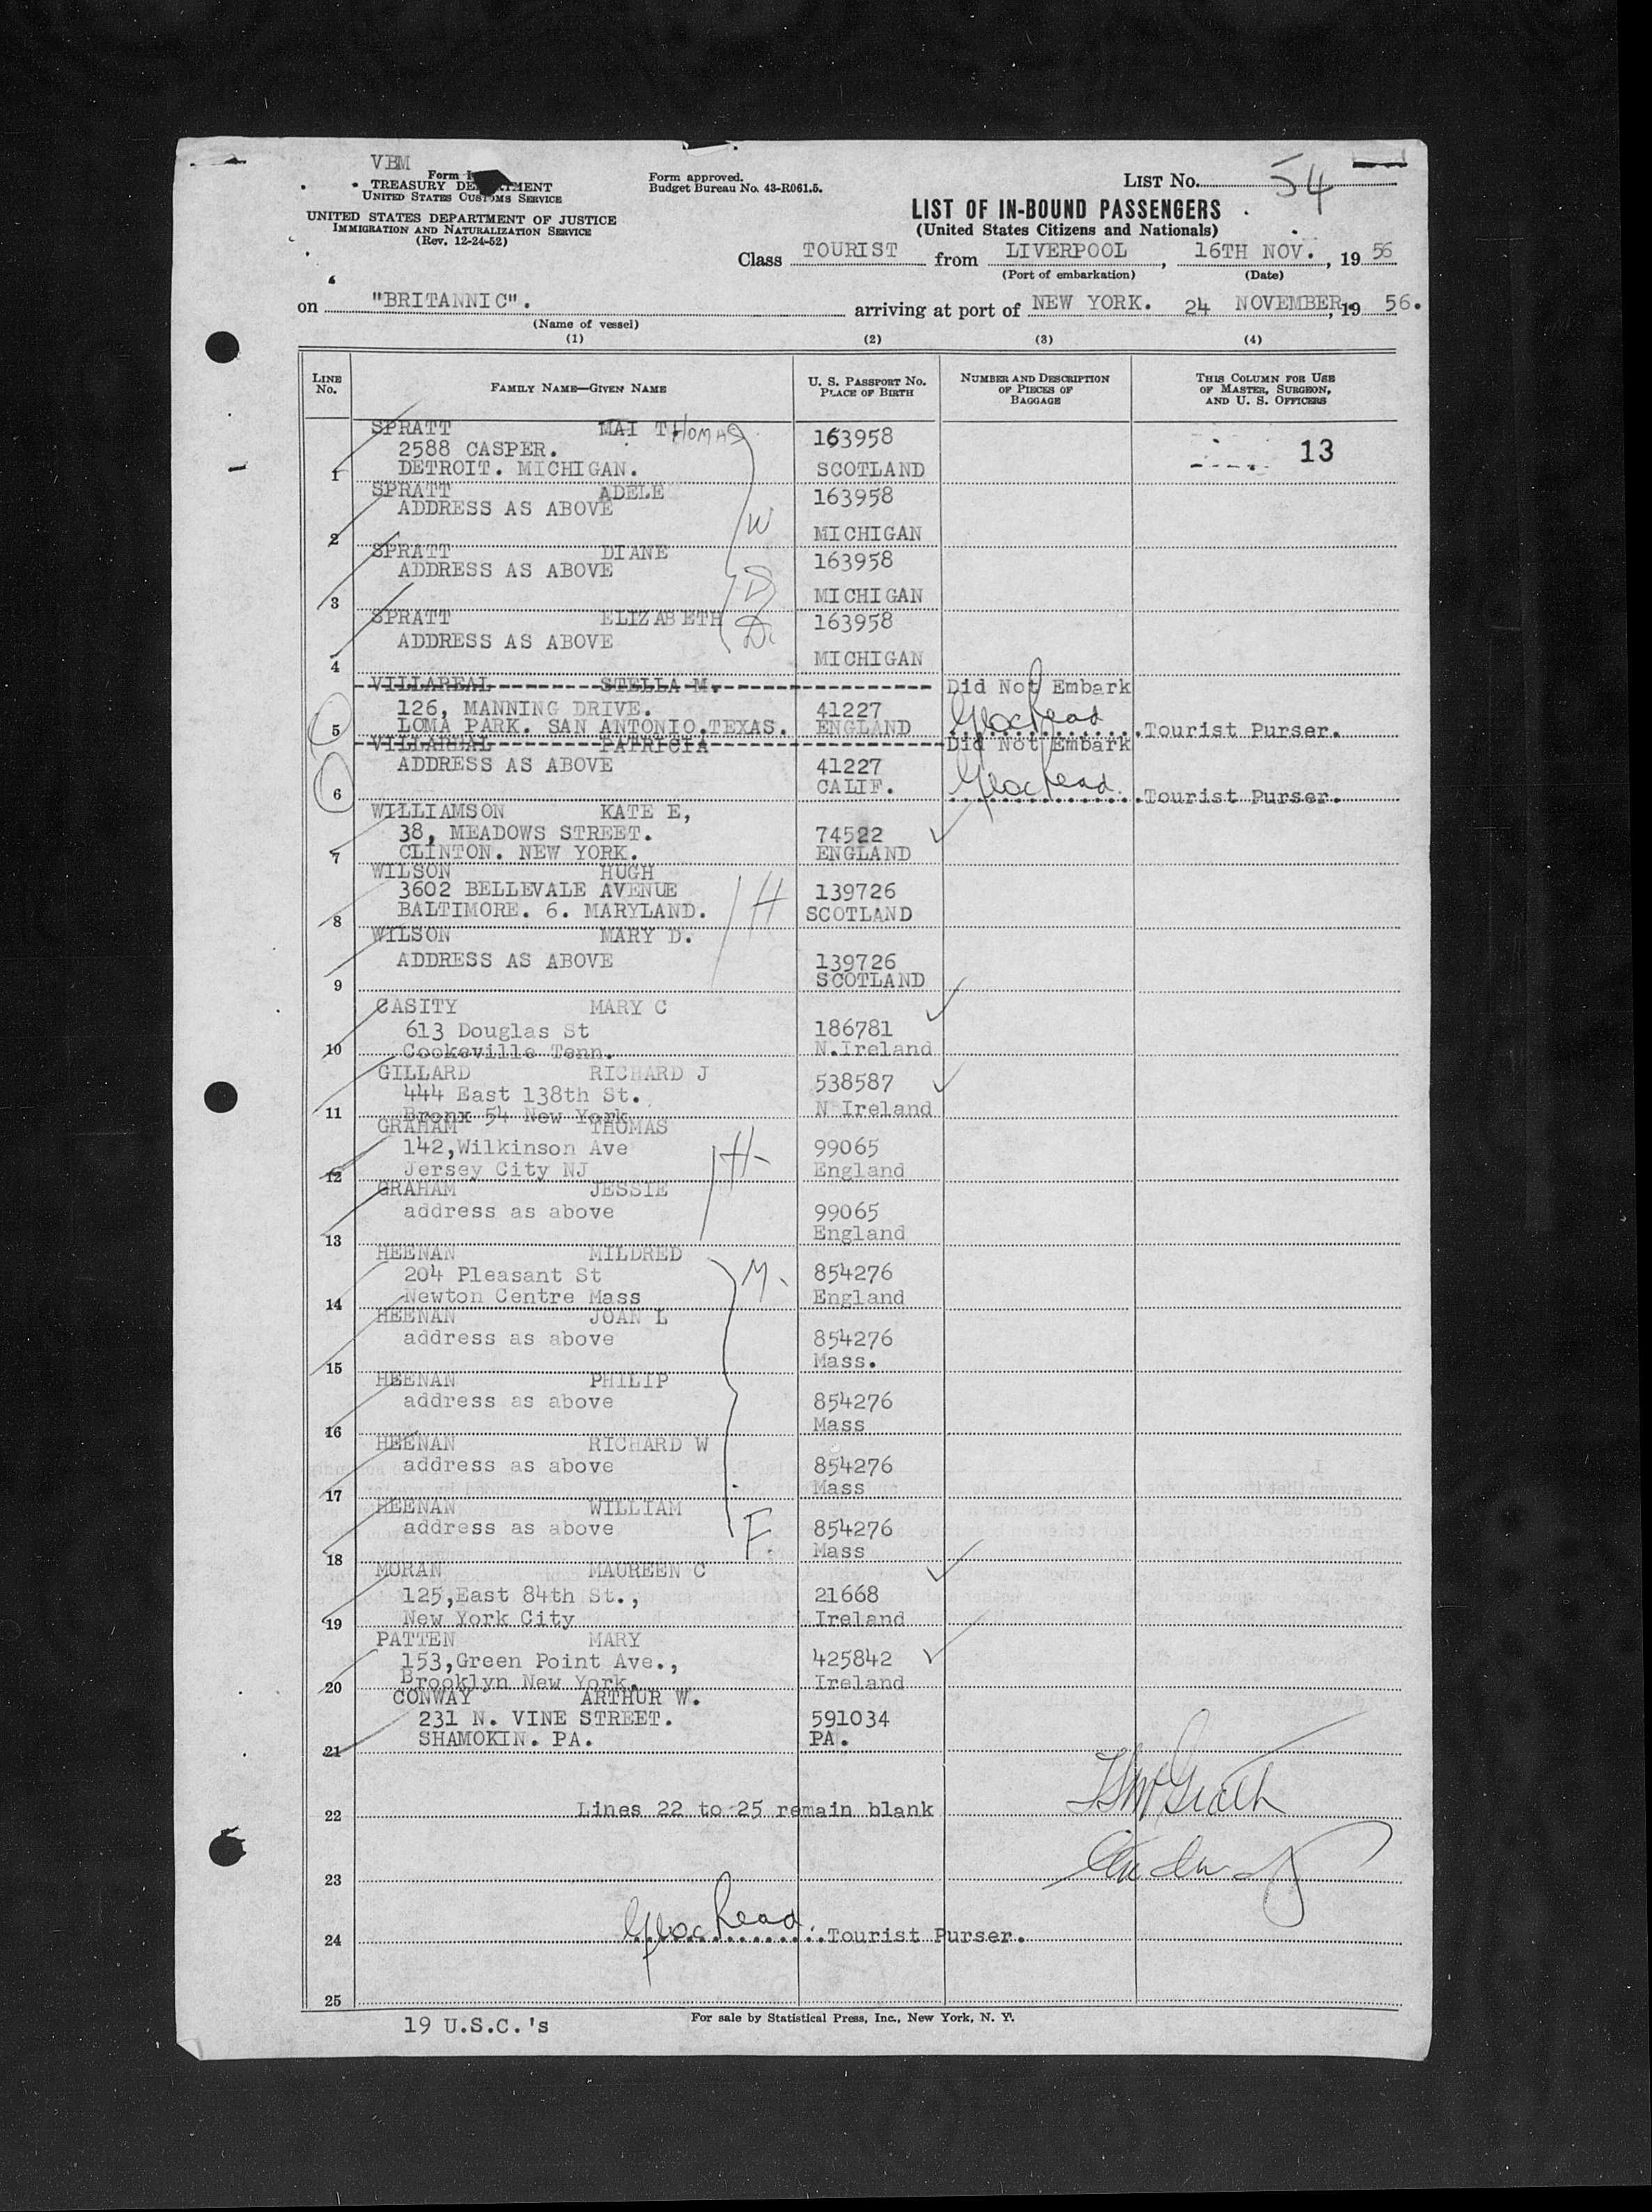 VBM
Form
TREASURY DEPARTMENT
UNITED STATES CUSTOMS SERVICE
UNITED STATES DEPARTMENT OF JUSTICE
IMMIGRATION AND NATURALIZATION SERVICE
(Rev. 12-24-52)
Form approved.
Budget Bureau No. 43-R061.5.
LIST No. 54
LIST OF IN-BOUND PASSENGERS
(United States Citizens and Nationals)
Class TOURIST from LIVERPOOL, 16TH NOV., 19 56
(Port of embarkation) (Date)
on "BRITANNIC". arriving at port of NEW YORK. 24 NOVEMBER, 19 56.
(Name of vessel)
(1) (2) (3) (4)
LINE No. FAMILY NAME—GIVEN NAME U. S. PASSPORT NO. PLACE OF BIRTH NUMBER AND DESCRIPTION OF PIECES OF BAGGAGE THIS COLUMN FOR USE OF MASTER, SURGEON, AND U. S. OFFICERS
SPRATT MAI THOMAS
2588 CASPER. 163958 13
1 DETROIT. MICHIGAN. SCOTLAND
SPRATT ADELE 163958
ADDRESS AS ABOVE W
2 MICHIGAN
SPRATT DIANE 163958
ADDRESS AS ABOVE D
3 MICHIGAN
SPRATT ELIZABETH 163958
ADDRESS AS ABOVE
4 MICHIGAN
VILLAREAL STELLA M. Did Not Embark
126, MANNING DRIVE. 41227
5 LOMA PARK. SAN ANTONIO.TEXAS. ENGLAND Tourist Purser.
VILLAREAL PATRICIA Did Not Embark
ADDRESS AS ABOVE 41227
6 CALIF. Tourist Purser.
WILLIAMSON KATE E,
38, MEADOWS STREET. 74522
7 CLINTON. NEW YORK. ENGLAND
WILSON HUGH
3602 BELLEVALE AVENUE H 139726
8 BALTIMORE. 6. MARYLAND. SCOTLAND
WILSON MARY D.
ADDRESS AS ABOVE 139726
9 SCOTLAND
CASITY MARY C
613 Douglas St 186781
10 Cookeville Tenn. N.Ireland
GILLARD RICHARD J 538587
444 East 138th St.
11 Bronx 54 New York N Ireland
GRAHAM THOMAS
142,Wilkinson Ave H 99065
12 Jersey City NJ England
GRAHAM JESSIE
address as above 99065
13 England
HEENAN MILDRED
204 Pleasant St M. 854276
14 Newton Centre Mass England
HEENAN JOAN L
address as above 854276
15 Mass.
HEENAN PHILIP
address as above 854276
16 Mass
HEENAN RICHARD W
address as above 854276
17 Mass
HEENAN WILLIAM
address as above F. 854276
18 Mass
MORAN MAUREEN C
125,East 84th St., 21668
19 New York City Ireland
PATTEN MARY
153,Green Point Ave., 425842
20 Brooklyn New York. Ireland
CONWAY ARTHUR W.
231 N. VINE STREET. 591034
21 SHAMOKIN. PA. PA.
22 Lines 22 to 25 remain blank
23
24 Tourist Purser.
25
19 U.S.C.'s
For sale by Statistical Press, Inc., New York, N. Y.